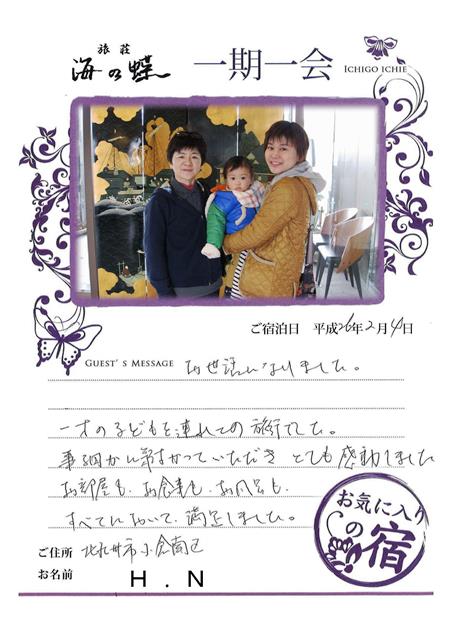 旅荘
海の蝶
一期一会
ICHIGO ICHIE
ご宿泊日 平成26年2月4日
GUEST'S MESSAGE お世話になりました。
一才の子どもを連れての旅行でした。
事細かに
していただき とても感動しました
お部屋も、お食事も、お風呂も、
すべてにおいて、満足しました。
お気に入り
の
宿
ご住所 北九州市小倉南区
お名前 H.N